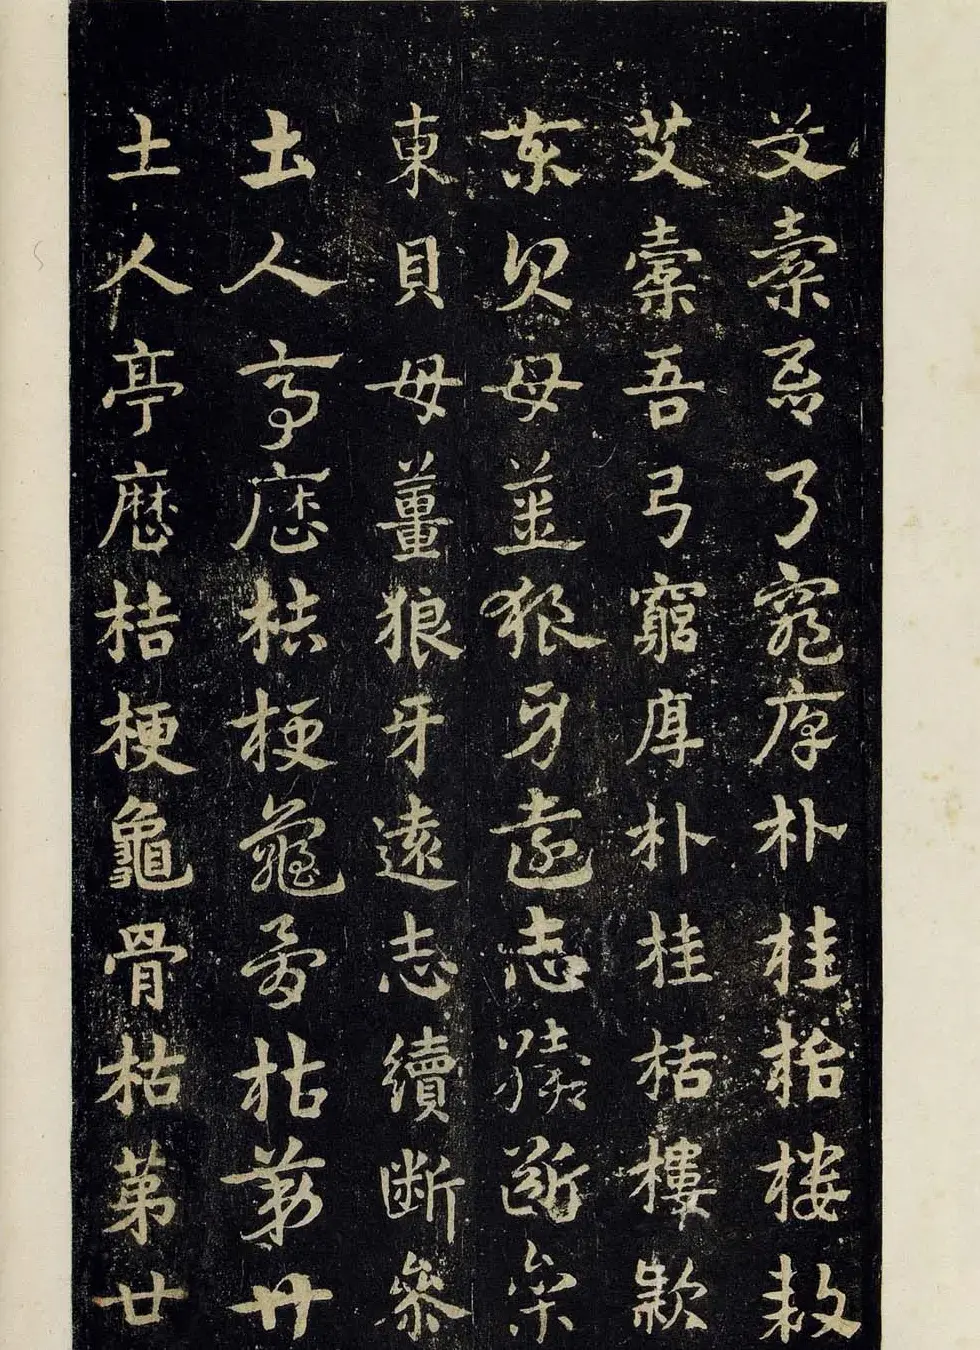 艾橐吾弓窮厚朴桂栝樓款
艾橐吾弓窮厚朴桂栝樓款
東貝母薑狼牙遠志續斷參
東貝母薑狼牙遠志續斷參
土人亭歷桔梗龜骨枯第廿
土人亭歷桔梗龜骨枯第廿